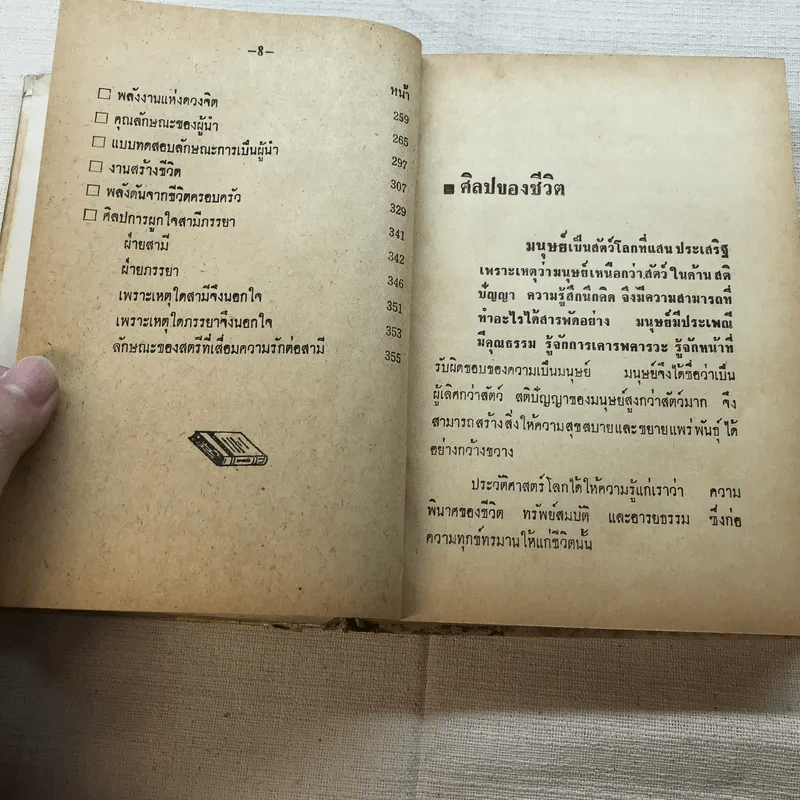 –8–
หน้า
□ พลังงานแห่งดวงจิต 259
□ คุณลักษณะของผู้นำ 265
□ แบบทดสอบลักษณะการเป็นผู้นำ 297
□ งานสร้างชีวิต 307
□ พลังดันจากชีวิตครอบครัว 329
□ ศิลปการผูกใจสามีภรรยา 341
ฝ่ายสามี 342
ฝ่ายภรรยา 346
เพราะเหตุใดสามีจึงนอกใจ 351
เพราะเหตุใดภรรยาจึงนอกใจ 353
ลักษณะของสตรีที่เสื่อมความรักต่อสามี 355
■ ศิลปของชีวิต
มนุษย์เป็นสัตว์โลกที่แสนประเสริฐ
เพราะเหตุว่ามนุษย์เหนือกว่าสัตว์ ในด้าน สติ
ปัญญา ความรู้สึกนึกคิด จึงมีความสามารถที่
ทำอะไรได้สารพัดอย่าง มนุษย์มีประเพณี
มีคุณธรรม รู้จักการเคารพคารวะ รู้จักหน้าที่
รับผิดชอบของความเป็นมนุษย์ มนุษย์จึงได้ชื่อว่าเป็น
ผู้เลิศกว่าสัตว์ สติปัญญาของมนุษย์สูงกว่าสัตว์มาก จึง
สามารถสร้างสิ่งให้ความสุขสบายและขยายแพร่พันธุ์ได้
อย่างกว้างขวาง
ประวัติศาสตร์โลกได้ให้ความรู้แก่เราว่า ความ
พินาศของชีวิต ทรัพย์สมบัติ และอารยธรรม ซึ่งก่อ
ความทุกข์ทรมานให้แก่ชีวิตนั้น